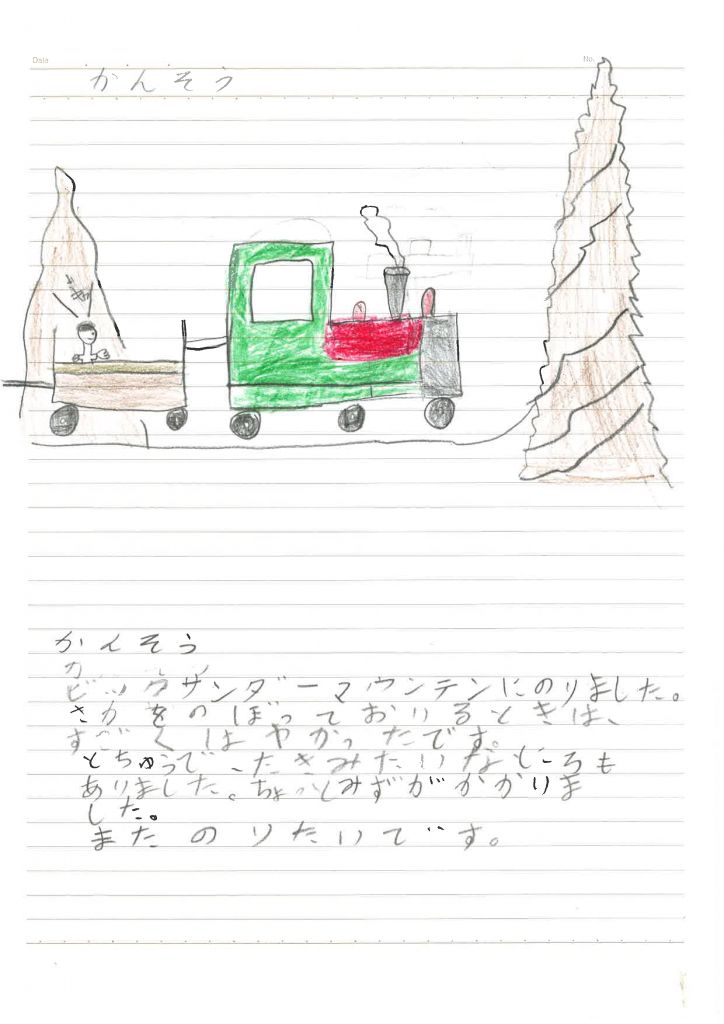 Date
No.
かんそう
かんそう
ビックサンダーマウンテンにのりました。
さかをのぼっておりるときは、
すごくはやかったです。
とちゅうで、たきみたいなところも
ありました。ちょっとみずがかかりま
した。
またのりたいです。